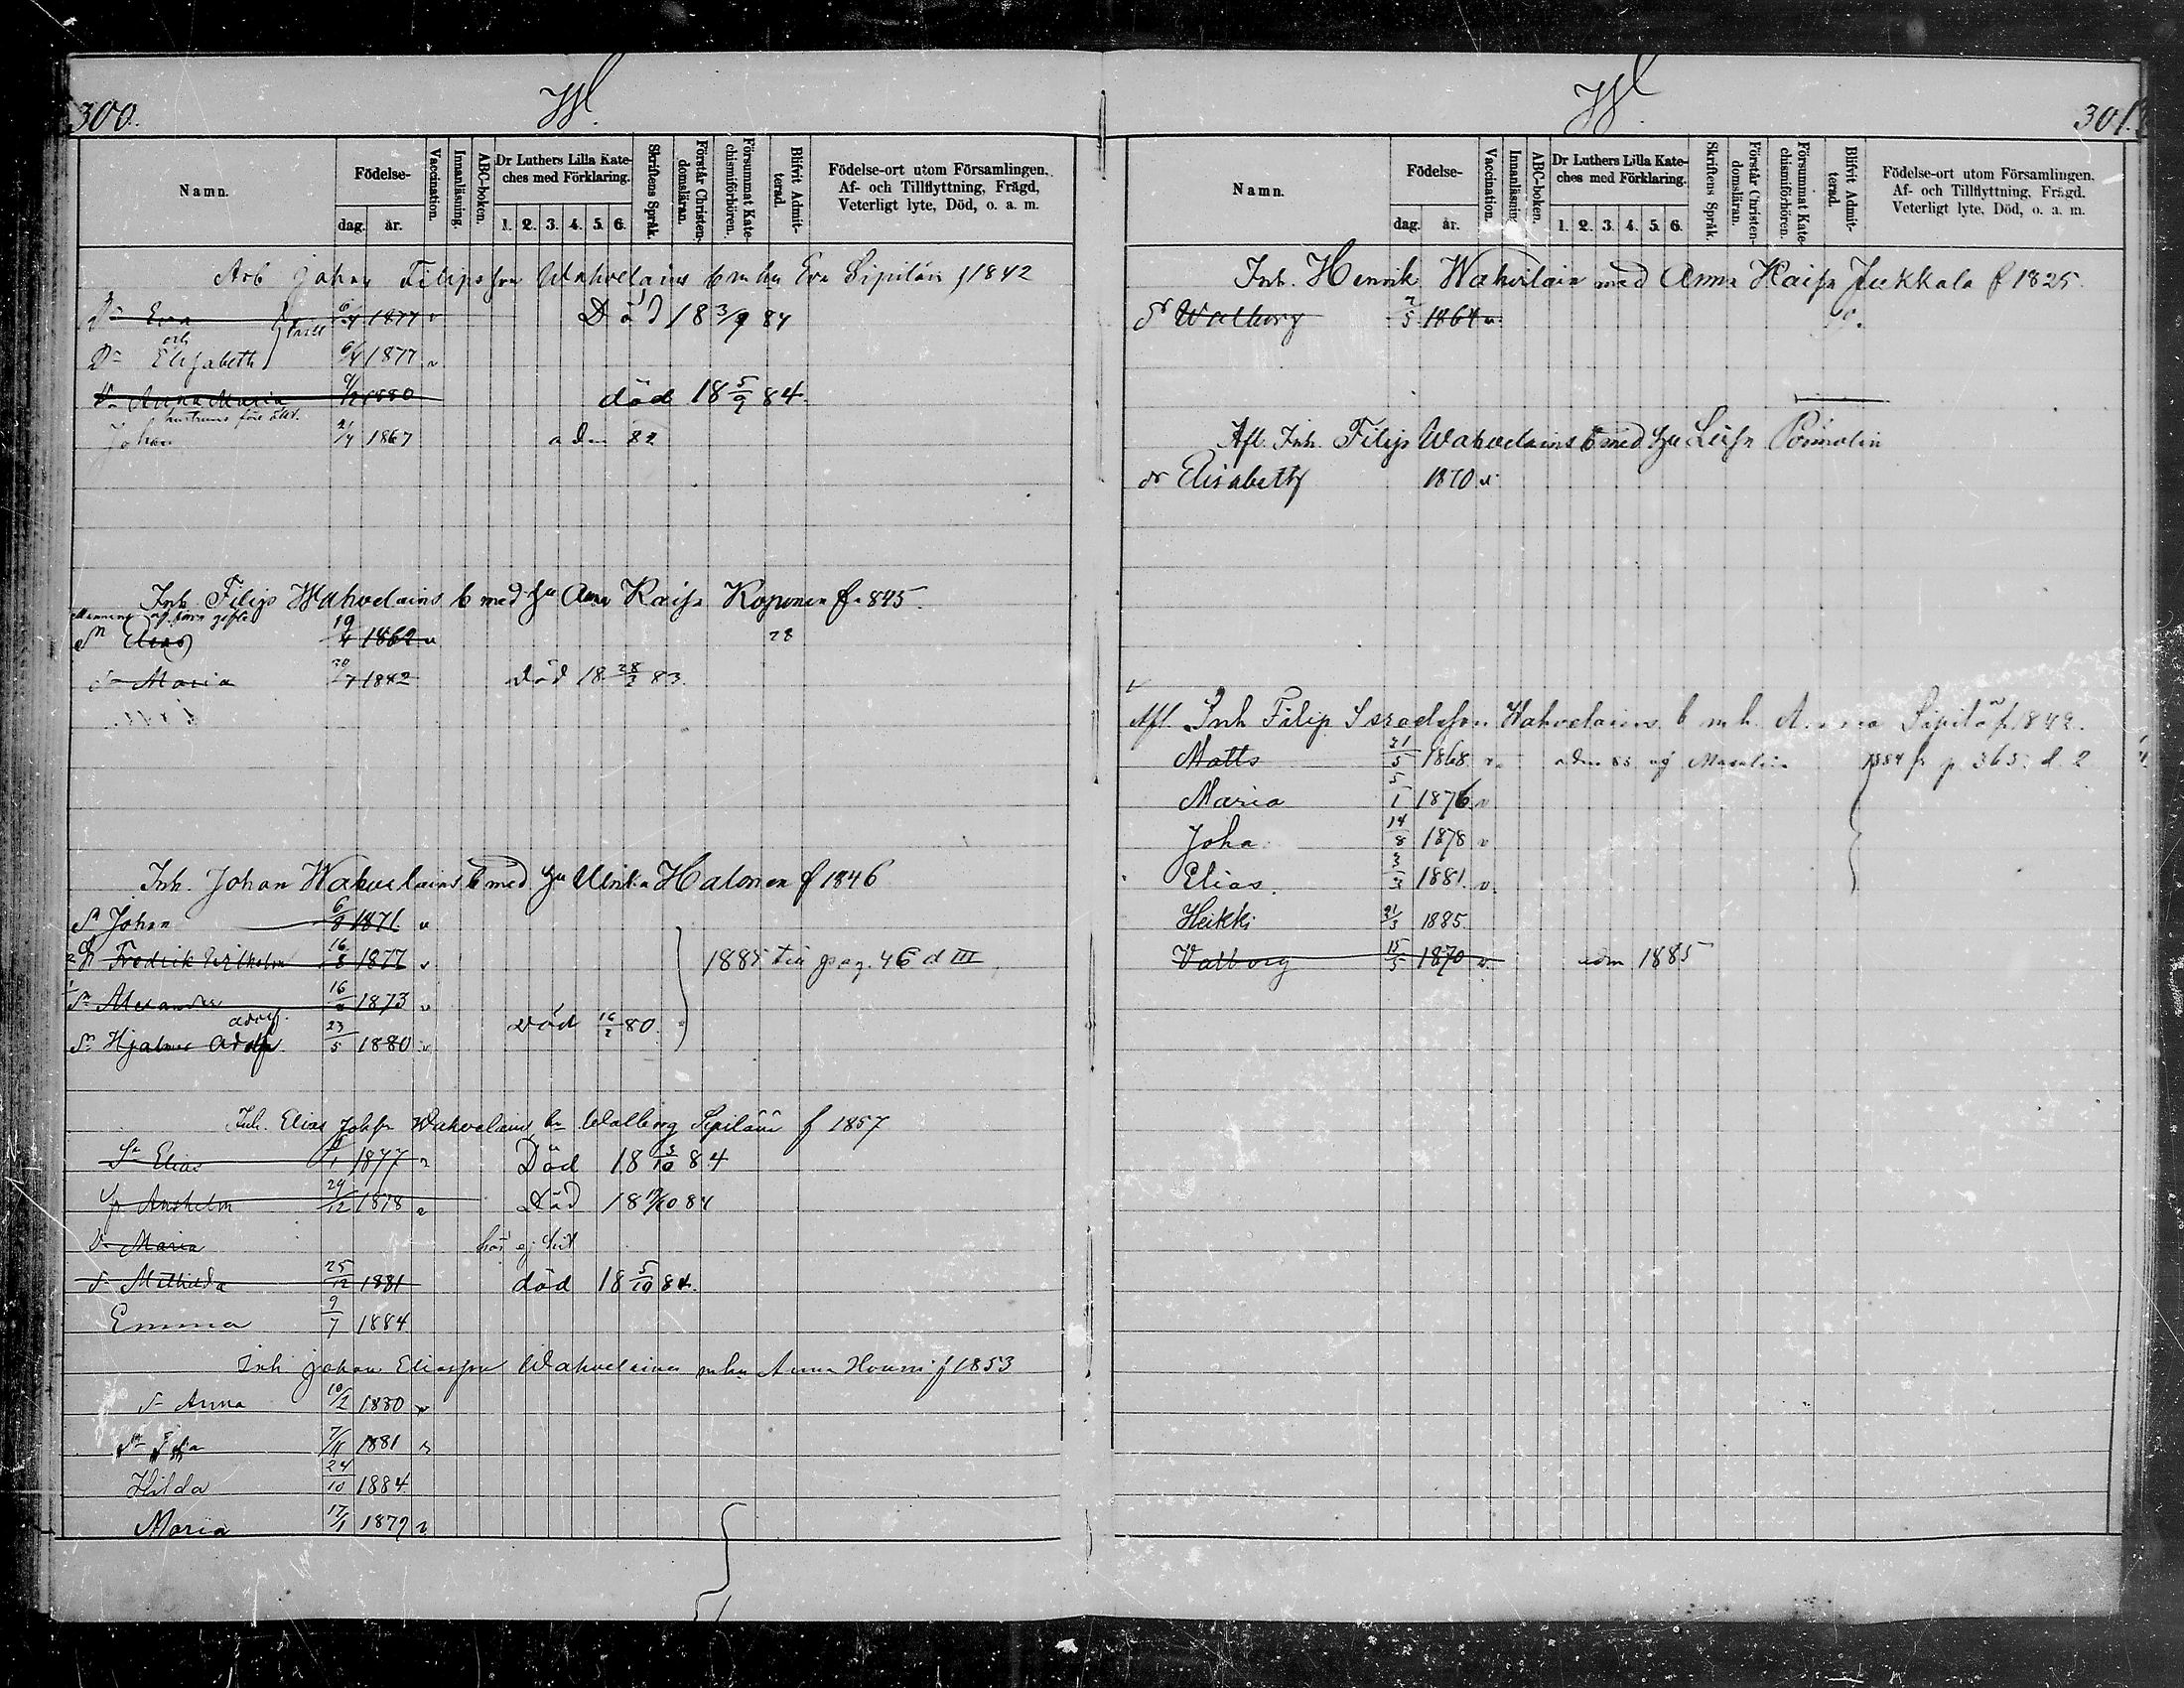 300.
W.
Namn.
Födelse-
dag.
år.
Vaccination.
Innanläsning.
ABC-boken.
Dr Luthers Lilla Kate-
ches med Förklaring.
1. 2. 3. 4. 5. 6.
Skriftens Språk.
Förstår Christen-
domsläran.
Försummat Kate-
chismiförhören.
Blifvit Admit-
terad.
Födelse-ort utom Församlingen,
Af- och Tillflyttning, Frägd,
Veterligt lyte, Död, o. a. m.
Arb Johan Filipsson Wahvelains b m hu Eva Sipiläin f 1842
Dr Eva 6/4 1877 v Död 18 3/9 84
och
Dr Elisabeth 6/4 1877 v
Dr Anna Maria 1880 död 18 5/9 84.
hustruns före äkt.
Johan 21/4 1867 adm 82
Inh. Filips Wahvelains b med hu Anna Kaisa Koponen f. 845.
Sn Elias 19/4 1862 v 78
Dr Maria 20/7 1842 död 18 28/2 83.
Inh. Johan Wahvelains b med hu Ulrika Halonen f 1846
Sn Johan 6/8 1871 v
2 Sn Fredrik Wilhelm 16/8 1877 v 1885 till pag. 46 d III
1 Sn Alexander 16 1873 v
Död 16/2 80.
Adolf.
Sn Hjalmar Adolf 23/5 1880 v
Inh. Elias Johsn Wahvelain b Walborg Sipiläin f 1857
Sn Elias 6/1 1877 v Död 18 3/10 84
Sn Anshelm 24/12 1878 v Död 18 /10 84
Dr Maria hör ej hit
Dr Mathilda 25/12 1881 död 18 5/10 84.
Emma 9/7 1884
Inh Johan Eliasson Wahvelainen mhu Anna Houni f 1853
Dr Anna 10/2 1880 v
7/11 1881 v
Hilda 24/10 1884
Maria 17/1 1879 v
W.
301.
Namn.
Födelse-
dag.
år.
Vaccination.
Innanläsning
ABC-boken.
Dr Luthers Lilla Kate-
ches med Förklaring.
1. 2. 3. 4. 5. 6.
Skriftens Språk.
Förstår Christen-
domsläran.
Försummat Kate-
chismiförhören.
Blifvit Admit-
terad.
Födelse-ort utom Församlingen,
Af- och Tillflyttning, Frägd.
Veterligt lyte, Död, o. a. m.
Inh. Henrik Wahvelain med Anna Kaisa Jukkala f 1825.
Dr Walborg 2/5 1864 v
Afl. Inh. Filips Wahvelains b med hu Leisa
dr Elisabeth 1870 v
Afl. Inh Filip Isredsson Wahvelains b m h. Anna Sipilä f. 1842.
Matts 21/5 1868 v adm 85 1884 fr p. 365. d. 2
Maria 5/1 1876 v
Joha 14/8 1878 v
Elias 3/3 1881. v.
Heikki 21/3 1885
Valborg 15/5 1870 v. adm 1885